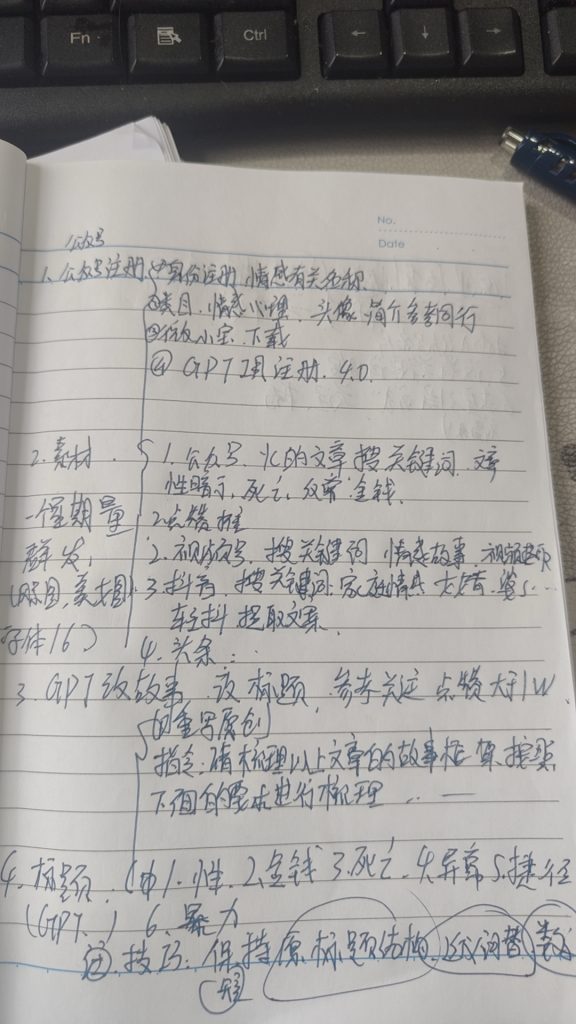 Fn
Ctrl
←
↓
→
No.
Date
公众号
1. 公众号注册 ①身份注册 情感有关名称
②类目. 情感心理. 头像 简介参考同行
③微小宝 下载
④ GPT 注册. 4.0.
2. 素材. 1. 公众号. 火的文章 搜关键词.
性暗示, 死亡, 金钱.
一个星期量 2. 点赞 推
群发, 2. 视频号, 搜关键词 情感故事
(原图, 美女图) 3. 抖音, 搜关键词 家庭情感
字体16) 轻抖 提取文案
4. 头条..
3. GPT 改故事 改标题, 参考关注 点赞大于1W
的重写原创
指令: 请梳理以上文章的故事框架 按照
下面的要求进行梳理 ... —
4. 标题. ① 1. 性. 2. 金钱 3. 死亡. 4. 异常 5. 捷径
(GPT.) 6. 暴力
② 技巧. 保持原标题结构 近义词替